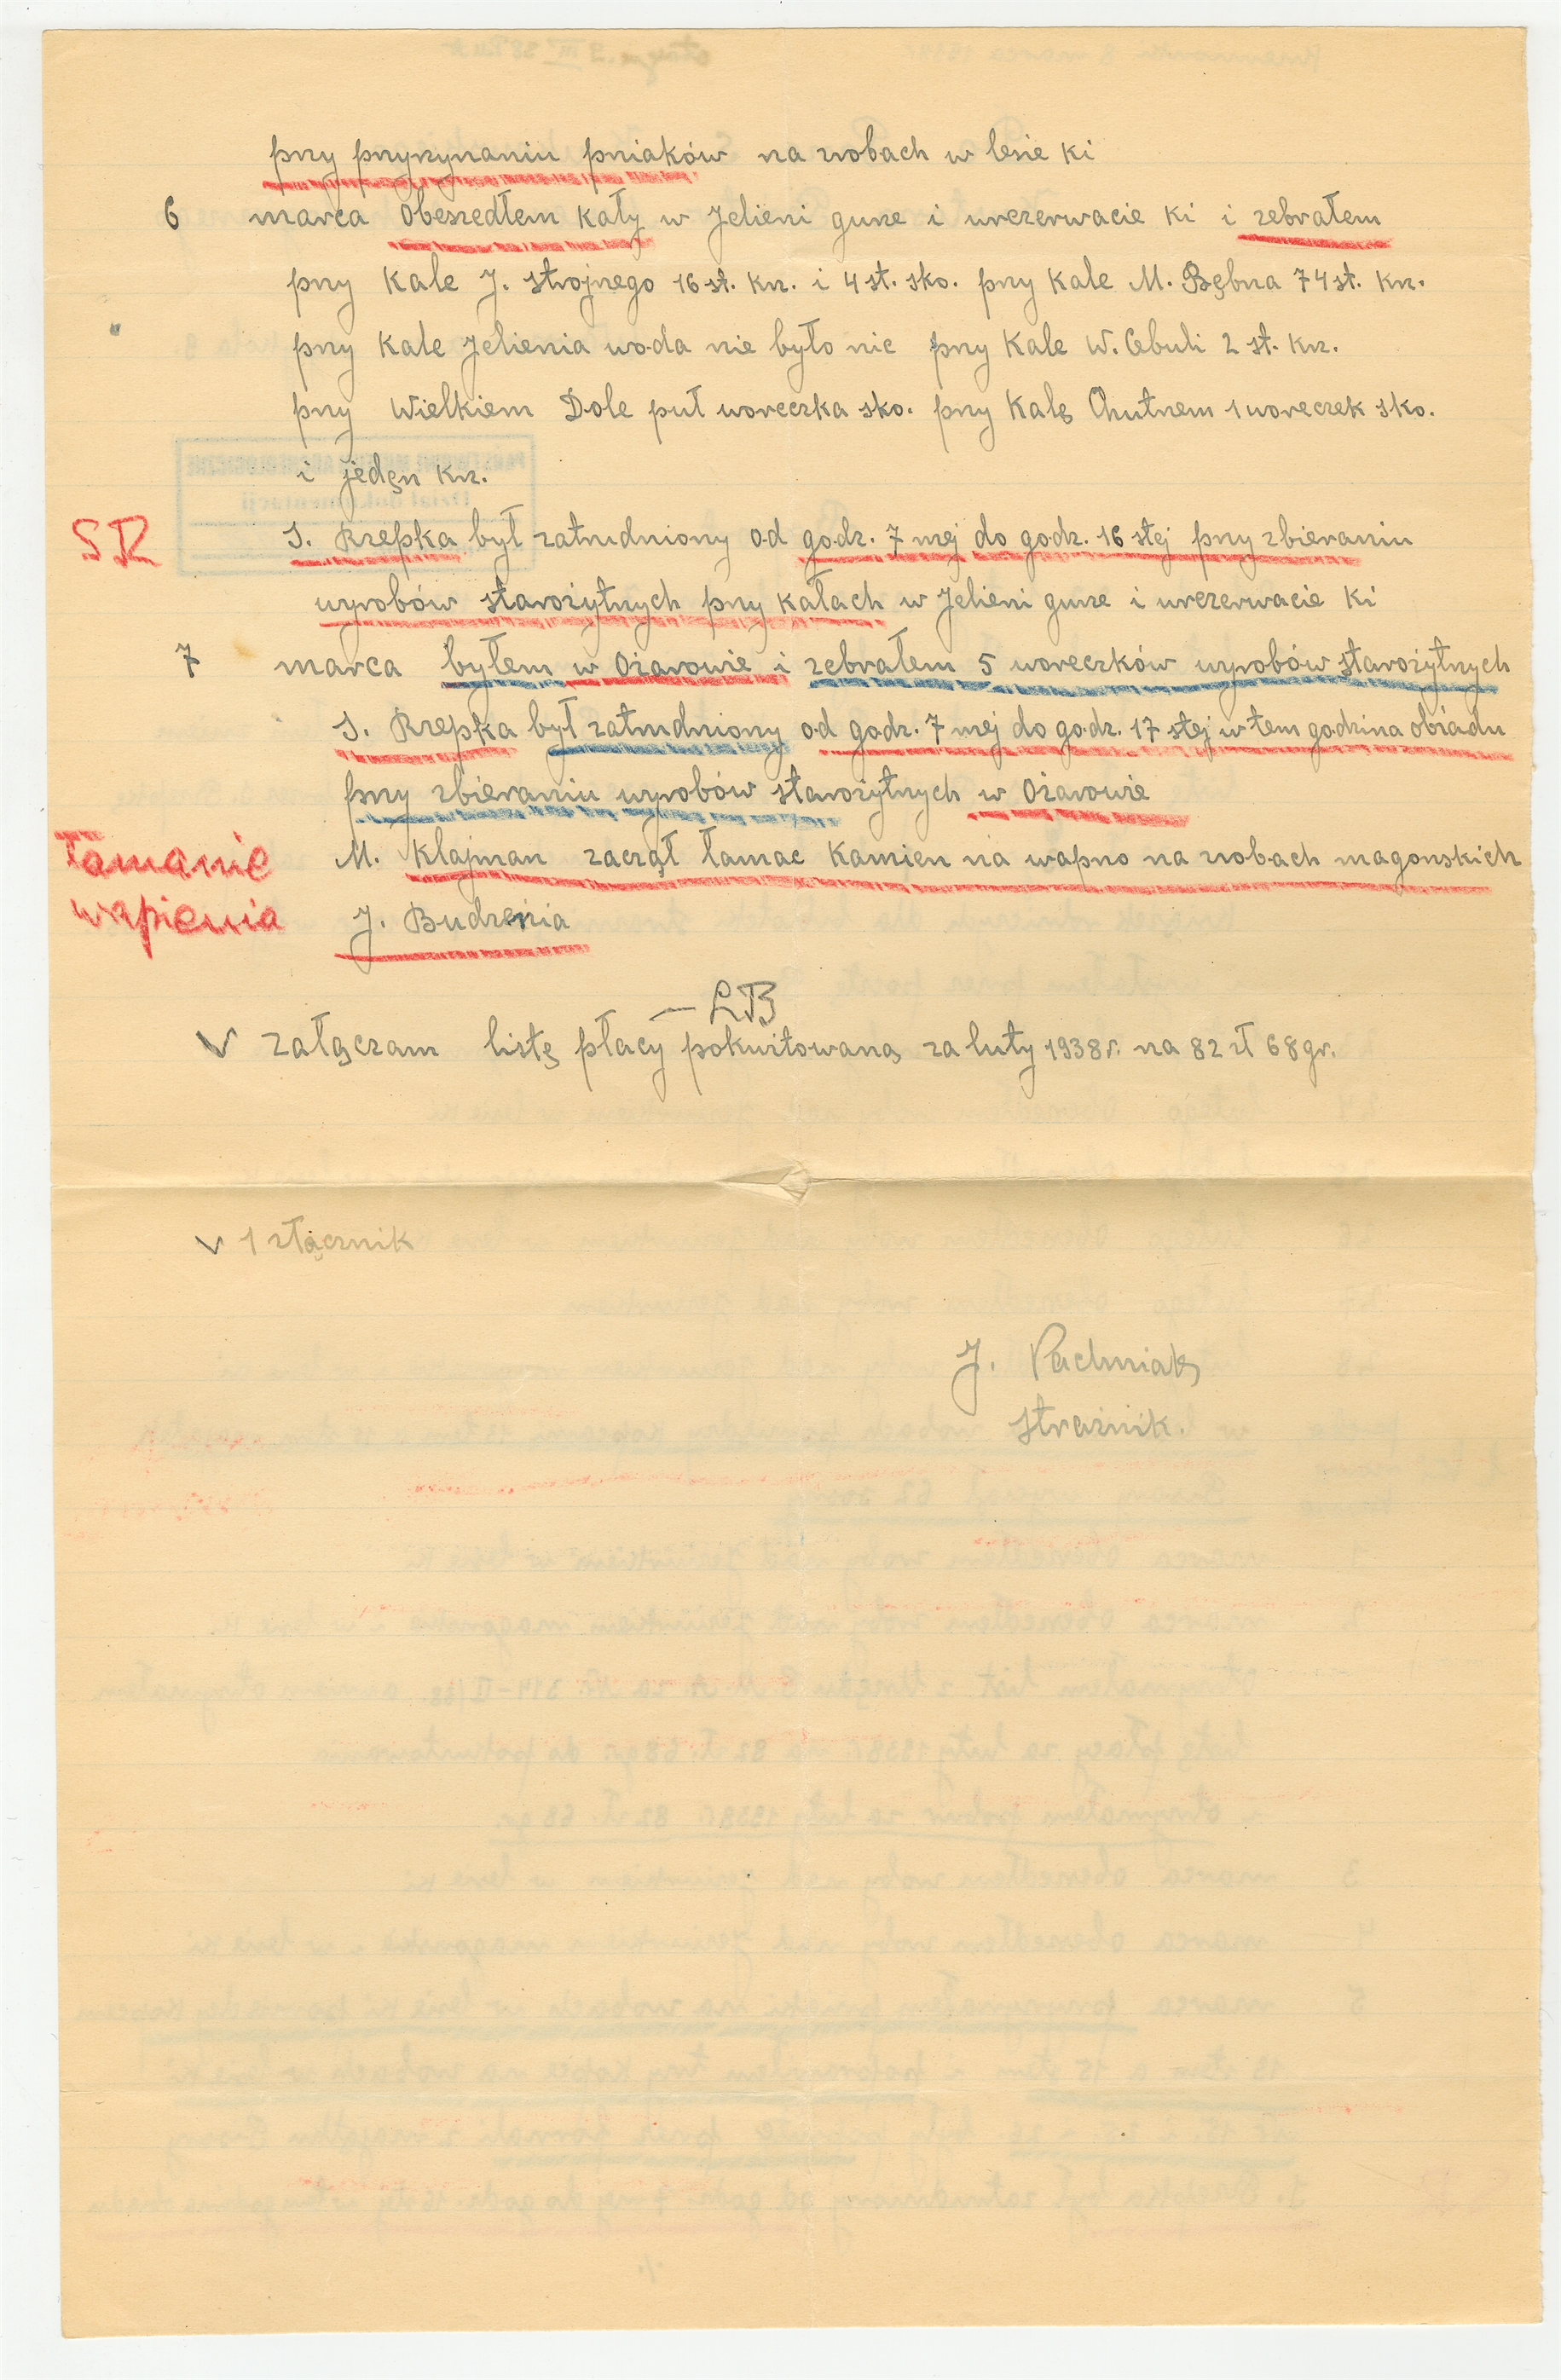 przy przyżynaniu pniaków na zrobach w lesie ki
6 marca Obeszedłem kały w Jelieni guze i urezerwacie ki i zebrałem
przy kale J. Strojnego 16 st. krz. i 4 st. sko. przy kale M. Bębna 74 st. krz.
przy kale Jelienia woda nie było nic przy kale W. Cebuli 2 st. krz.
przy Wielkiem Dole puł woreczka sko. przy kalę Chutnem 1 woreczek sko.
i jedęn krz.
SR S. Rzepka był zatrudniony od godz. 7 mej do godz. 16 stej przy zbieraniu
wyrobów starożytnych przy kałach w Jelieni guze i urezerwacie ki
7 marca byłem w Ożarowie i zebrałem 5 woreczków wyrobów starożytnych
S. Rzepka był zatrudniony od godz. 7 mej do godz. 17 stej w tem godzina obiadu
przy zbieraniu wyrobów starożytnych w Ożarowie
łamanie wapienia
M. Klajman zaczął łamac kamien na wapno na zrobach magonskich
J. Budzenia
— LB
V załączam listę płacy pokwitowaną za luty 1938 r. na 82 zł 68 gr.
V 1 złącznik
J. Pachniak
strażnik.